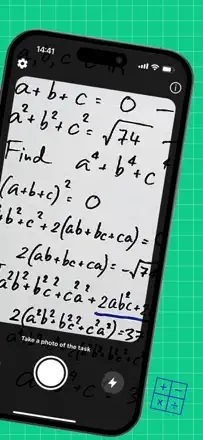 14:41
a + b + c = 0
a² + b² + c² = √74
Find a⁴ + b⁴ + c
(a+b+c)² = 0
b² + c² + 2(ab+bc+ca) =
2(ab+bc+ca) = -√7
a²b² + b²c² + ca² + 2ab²c +
2(a²b² + b²c² + c²a²) = 37
Take a photo of the task
+ − × ÷